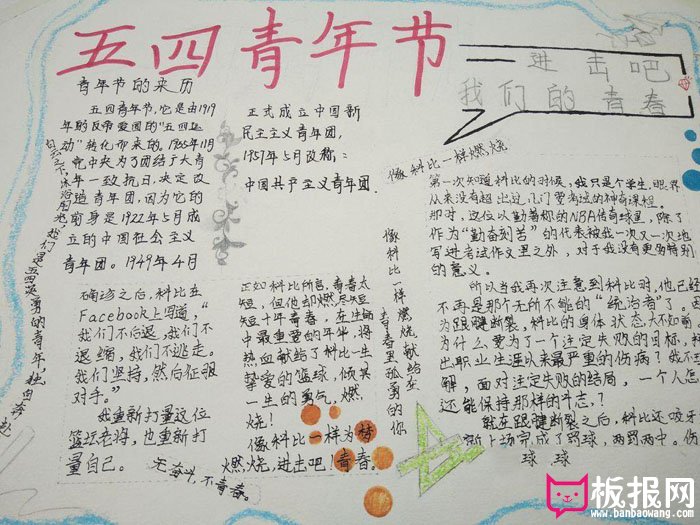 五四青年节
进击吧
我们的青春
青年节的来历
五四青年节,它是由1919
年的反帝爱国的"五四运
动"转化而来的,1935年11月
党中央为了团结广大青
年一致抗日,决定改
造青年团,因为它的
前身是1922年5月成
立的中国社会主义
青年团。1949年4月
正式成立中国新
民主主义青年团,
1957年5月改称:
中国共产主义青年团.
我们是五四英勇的青年,独自奔赴
像科比一样燃烧
第一次知道科比的时候,我只是个学生,眼界
从来没有超出过几门要考试的神奇课程.
那时,这位以勤奋称的NBA传奇球星,除了
作为"勤奋刻苦"的代表被我一次又一次地
写进考试作文里之外,对于我没有更多特别
的意义。
所以当我再次注意到科比时,他已经
不再是那个无所不能的"统治者"了。因
为跟腱断裂,科比的身体状态大不如前,
为什么要为了一个注定失败的目标,
出职业生涯以来最严重的伤病?我不
解,面对注定失败的结局,一个人怎
还能保持那样的斗志,?
就在跟腱断裂之后,科比还咬牙
上场完成了罚球,两罚两中。伤
球 球
像科比一样燃烧献给在
青春里孤勇的你
确诊之后,科比在
Facebook上写道,"
我们不后退,我们不
退缩,我们不逃走。
我们坚持,然后征服
对手。"
我重新打量这位
篮坛老将,也重新打
量自己。
无奋斗,不青春。
正如科比所言,青春太
短,但他却燃尽短
短十年青春,在生命
中最重要的年华,将
热血献给了科比一生
挚爱的篮球,倾其
一生的勇气,燃
烧!
像科比一样为梦
燃烧,进击吧!青春。
板报网
www.banbaowang.com